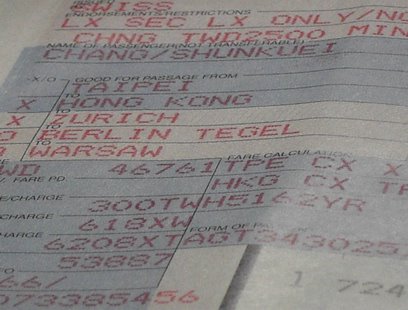 SWISS
ENDORSEMENTS/RESTRICTIONS
LX SEC LX ONLY/NO
CHNG TWD2500 MIN
NAME OF PASSENGER (NOT TRANSFERABLE)
CHANG/SHUNKUEI
X/O GOOD FOR PASSAGE FROM
TAIPEI
TO
X HONG KONG
TO
X ZURICH
TO
O BERLIN TEGEL
TO
WARSAW
FARE CALCULATION
WD 46761 TPE CX X
FARE PD.
HKG CX
E/CHARGE
300TW H5162YR
/CHARGE
618XW
FORM OF
CHARGE
6208XT AGT343025
53887
66/
073385456
1 724